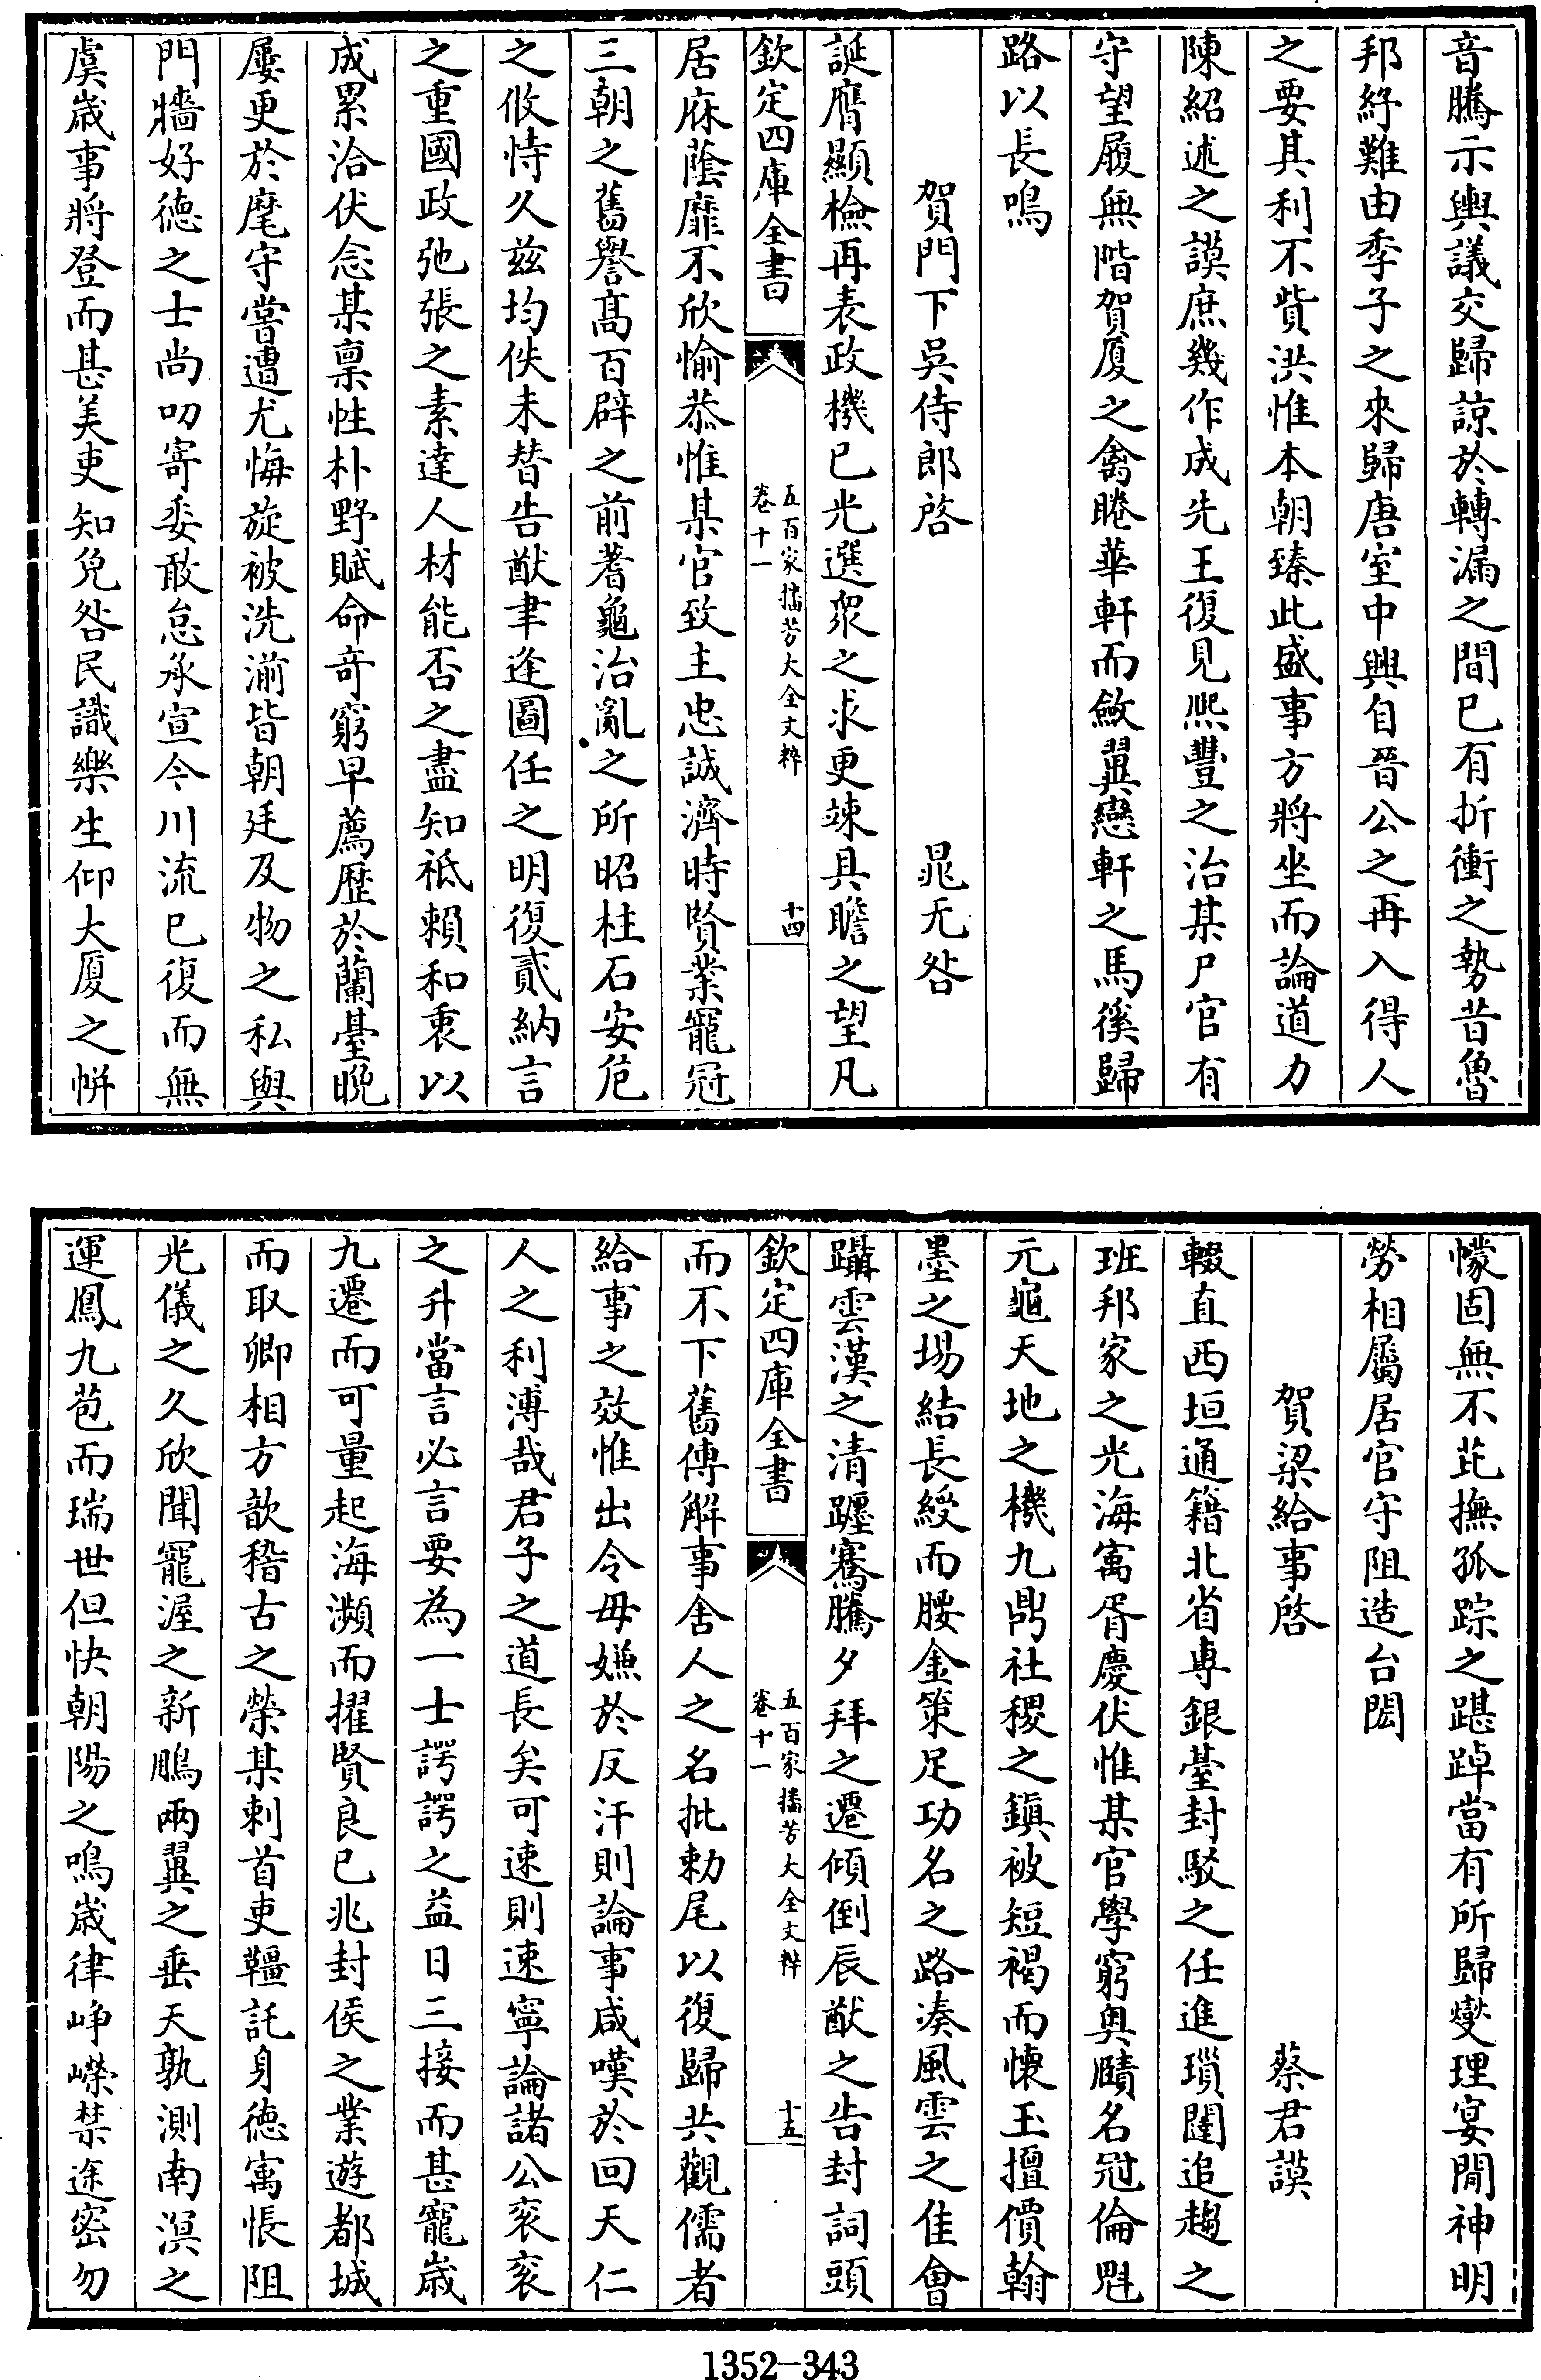 音騰示輿議交歸諒於轉漏之間已有折衝之勢昔魯
邦紓難由季子之來歸唐室中興自晉公之再入得人
之要其利不貲洪惟本朝臻此盛事方將坐而論道力
陳紹述之謨庶幾作成先王復見熈豐之治某尸官有
守望履無階賀厦之禽睠華軒而斂翼戀軒之馬徯歸
路以長鳴
賀門下吳侍郎啓
晁无咎
誕膺顯檢再表政機已光選衆之求更竦具瞻之望凡
欽定四庫全書
五百家播芳大全文粹
卷十一
十四
居庥蔭靡不欣愉恭惟某官致主忠誠濟時賢業寵冠
三朝之舊譽髙百辟之前蓍龜治亂之所昭柱石安危
之攸恃久兹均佚未替告猷聿逢圖任之明復貳納言
之重國政弛張之素達人材能否之盡知祗賴和衷以
成累洽伏念某禀性朴野賦命竒窮早薦歴於蘭臺晩
屢更於麾守嘗遭尤悔旋被洗湔皆朝廷及物之私與
門牆好德之士尚叨寄委敢怠承宣今川流已復而無
虞歳事將登而甚美吏知免咎民識樂生仰大厦之帡
幪固無不芘撫孤踪之踸踔當有所歸燮理宴閒神明
勞相屬居官守阻造台閎
賀梁給事啓
蔡君謨
輟直西垣通籍北省專銀臺封駁之任進瑣闥追趨之
班邦家之光海寓胥慶伏惟某官學窮奥賾名冠倫魁
元龜天地之機九鼎社稷之鎮被短褐而懷玉擅價翰
墨之場結長綬而腰金策足功名之路湊風雲之隹會
躡雲漢之清躔騫騰夕拜之遷傾倒辰猷之告封詞頭
欽定四庫全書
五百家播芳大全文粹
卷十一
十五
而不下舊傳解事舍人之名批勅尾以復歸共觀儒者
給事之效惟出令毋嫌於反汗則論事咸嘆於回天仁
人之利溥哉君子之道長矣可速則速寧論諸公衮衮
之升當言必言要為一士諤諤之益日三接而甚寵歳
九遷而可量起海濒而擢賢良已兆封侯之業遊都城
而取卿相方歆稽古之榮某刺首吏韁託身德寓悵阻
光儀之久欣聞寵渥之新鵬兩翼之垂天孰測南溟之
運鳳九苞而瑞世但快朝陽之鳴歳律峥嶸禁途密勿
1352-343